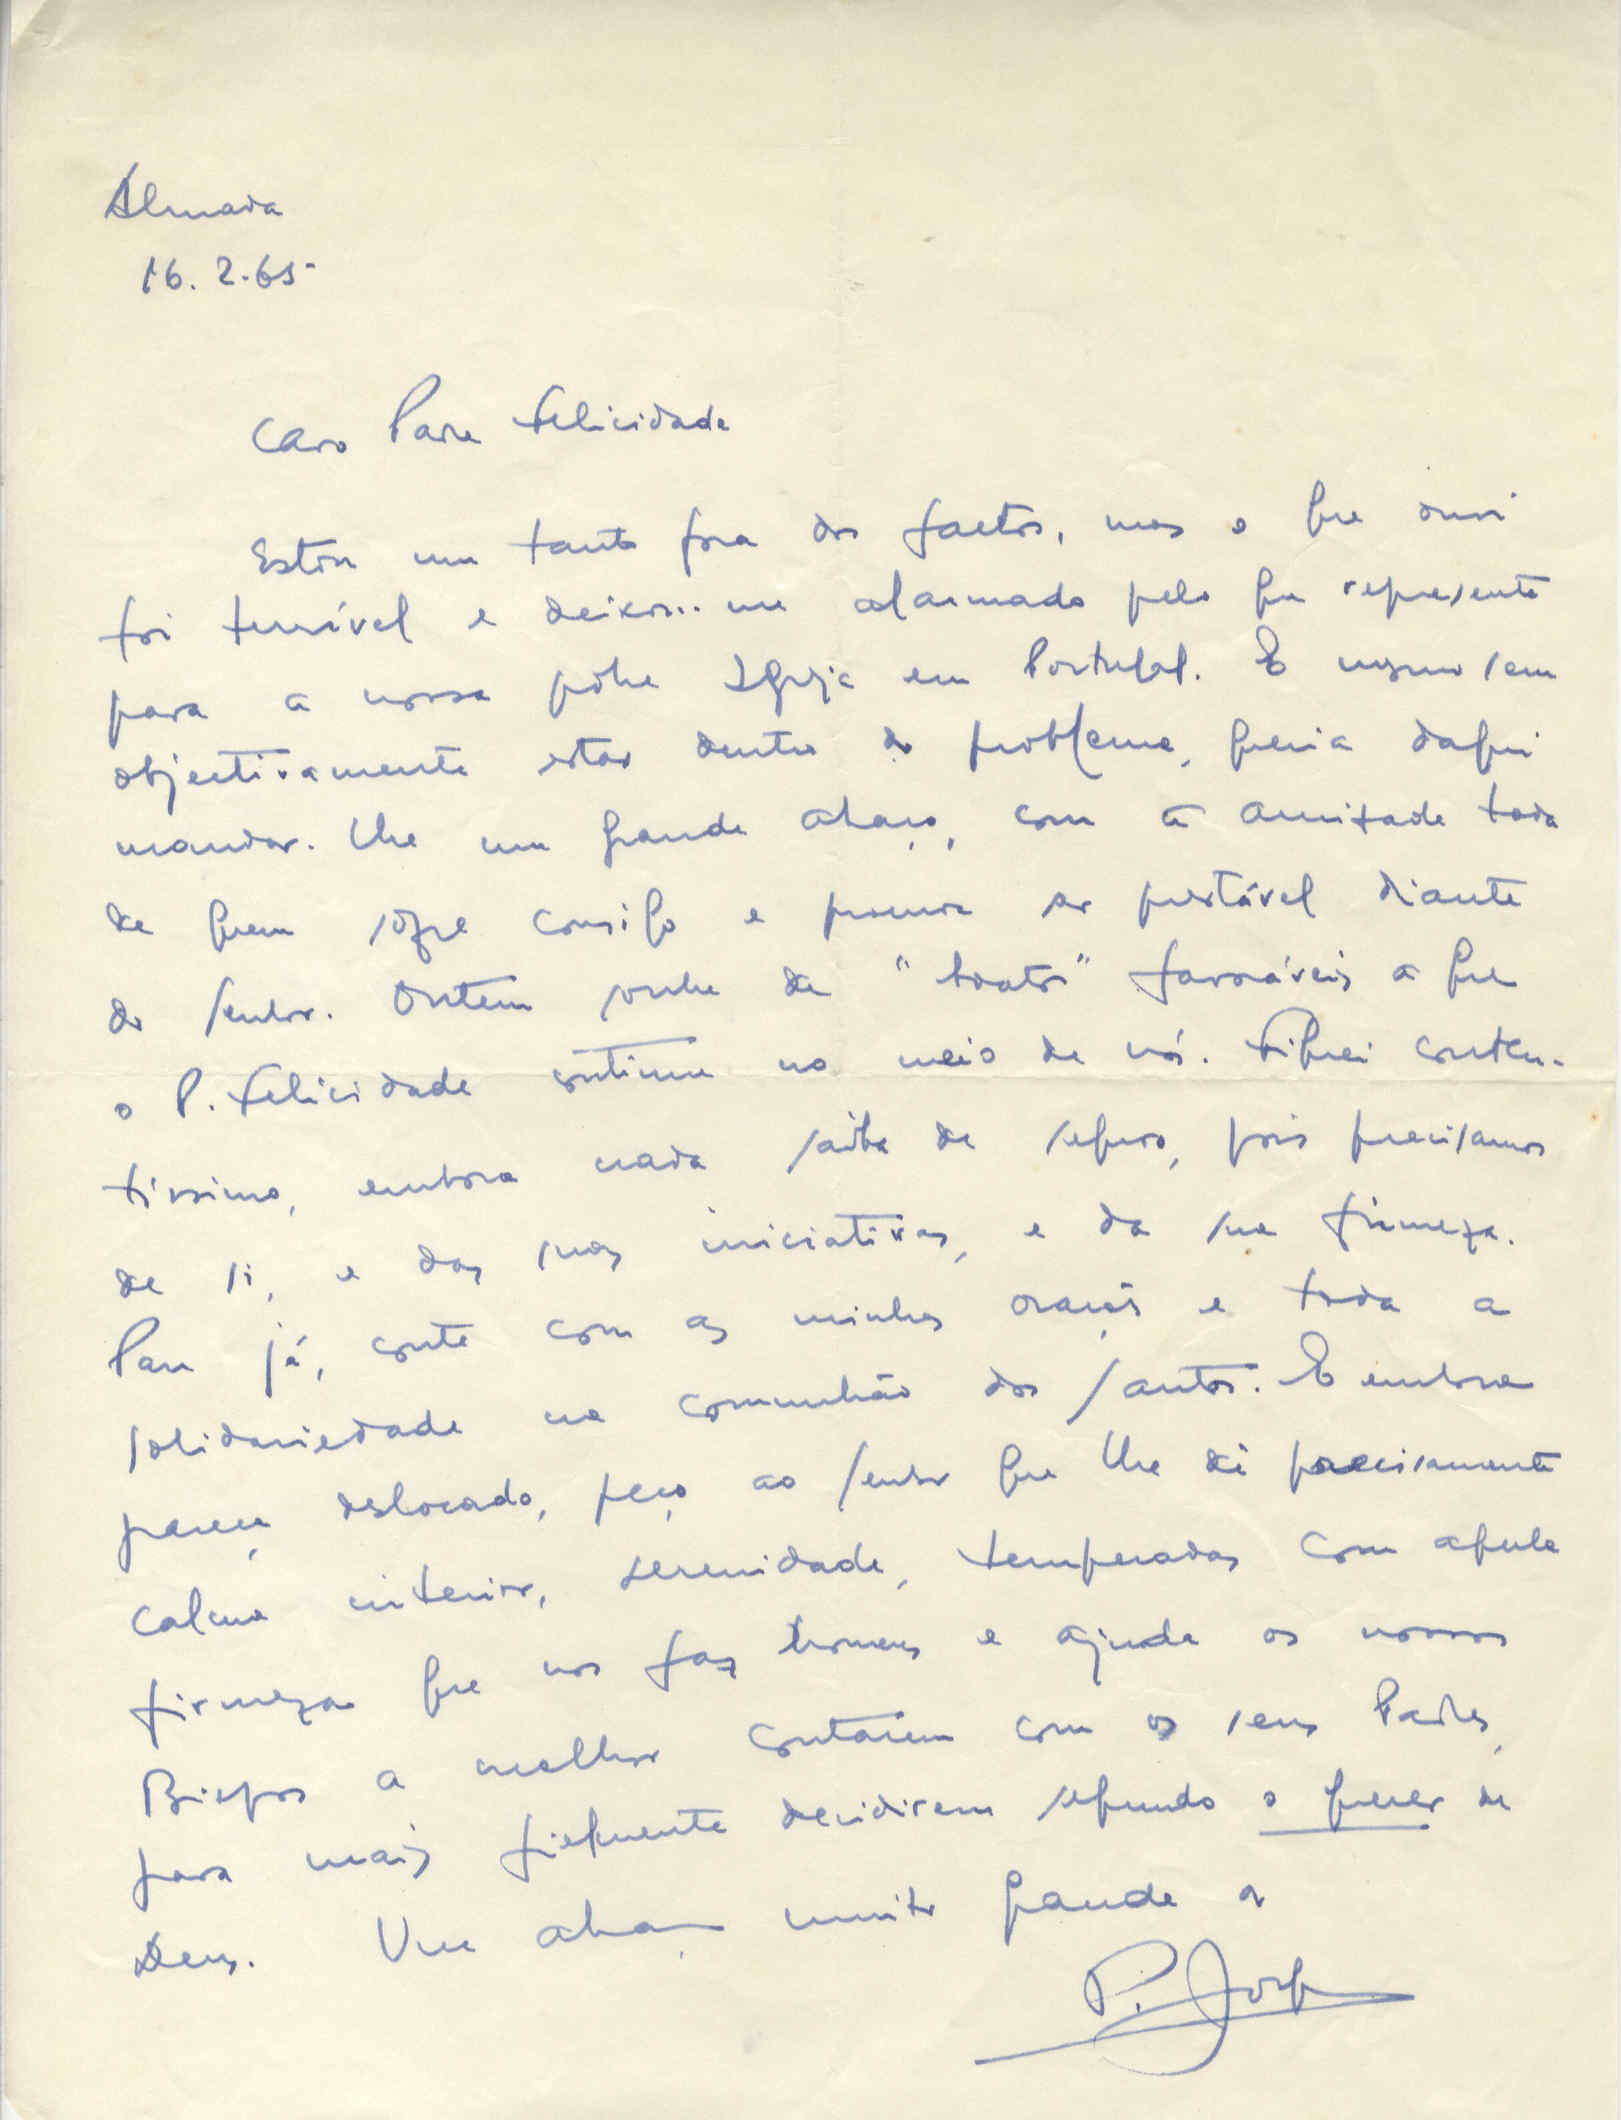 Almada
16.2.65
Caro Padre Felicidade
Estou um tanto fora dos factos, mas o que ouvi
foi terrível e deixou-me alarmado pelo que representa
para a nossa pobre Igreja em Portugal. E mesmo sem
objectivamente estar dentro do problema, queria daqui
mandar-lhe um grande abraço, com a amizade toda
de quem sofre consigo e procura ser prestável diante
do Senhor. Ontem soube de "boatos" favoráveis a que
o P. Felicidade continue no meio de nós. Fiquei conten-
tíssimo, embora nada saiba de seguro, pois precisamos
de si, e das suas iniciativas, e da sua firmeza.
Para já, conte com as minhas orações e toda a
solidariedade na comunhão dos Santos. E embora
pareça deslocado, peço ao Senhor que lhe dê precisamente
calma interior, serenidade, temperadas com aquela
firmeza que nos faz homens e ajude os nossos
Bispos a melhor contarem com os seus Padres,
para mais fielmente decidirem segundo o querer de
Deus. Um abraço muito grande do
P. Jorge